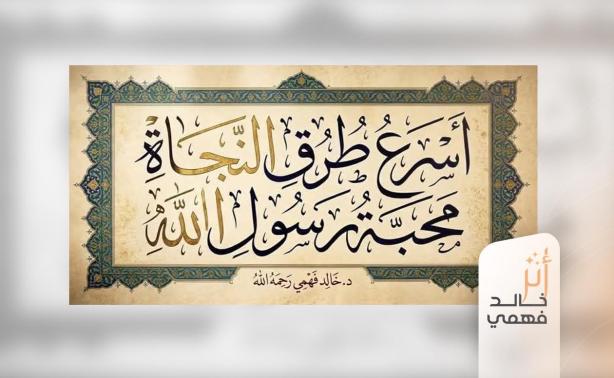 أَسْرَعُ طُرُقِ النَّجَاةِ
مَحَبَّةُ رَسُولِ اللَّهِ
د. خَالِد فَهْمِي رَحِمَهُ اللَّهُ
أثر
خالد
فهمي